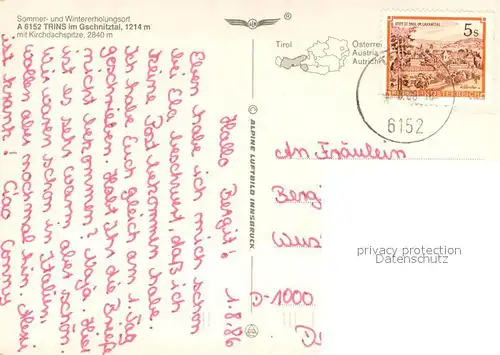 Sommer- und Wintererholungsort
A 6152 TRINS im Gschnitztal, 1214 m
mit Kirchdachspitze, 2840 m
®
Tirol
Österrei
Austria
Autrich
STIFT ST. PAUL IM LAVANTTAL
5s
REPUBLIK ÖSTERREICH
6152
© ALPINE LUFTBILD INNSBRUCK
Hallo Bergit! 1.8.86
Eben habe ich mich schon
bei Ela beschwert, daß ich
keine Post bekommen habe.
Ich habe Euch gleich am 1. Tag
geschrieben. Habt Ihr die Briefe
nicht bekommen? Naja. Hier
ist es sehr warm aber schön.
Wir waren schon in Italien,
wollen aber nochmal hin.
ist krank! Ciao Conny
An Fräulein
Berg
Wus
D-1000
privacy protection
Datenschutz